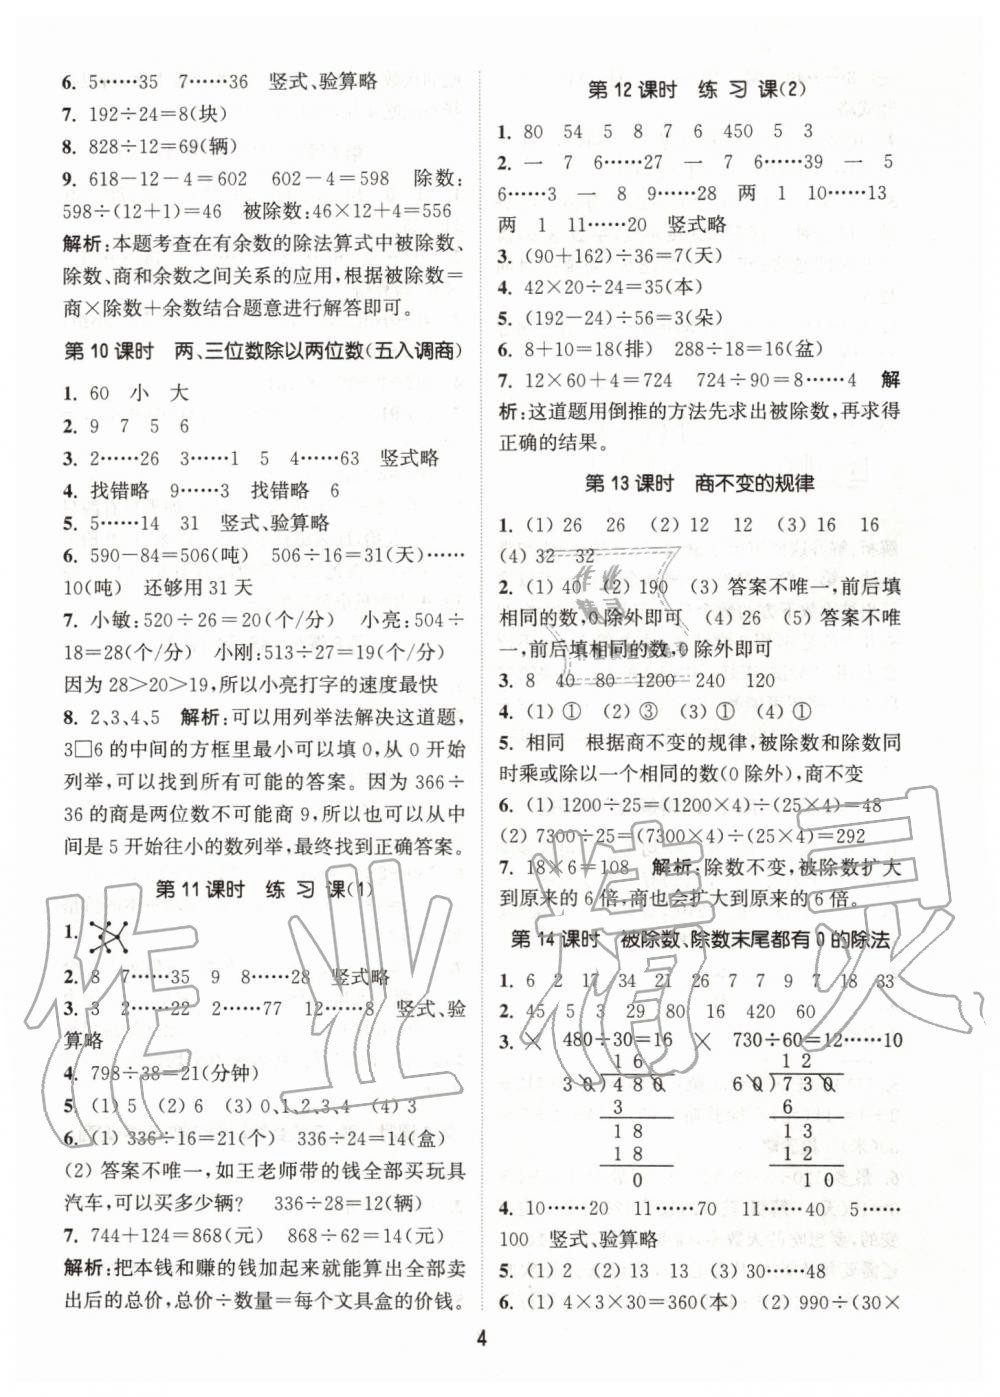 6. 5……35　7……36　竖式、验算略
7. 192÷24=8(块)
8. 828÷12=69(辆)
9. 618-12-4=602　602-4=598　除数:
598÷(12+1)=46　被除数:46×12+4=556
解析:本题考查在有余数的除法算式中被除数、
除数、商和余数之间关系的应用,根据被除数=
商×除数+余数结合题意进行解答即可。
第 10 课时　两、三位数除以两位数(五入调商)
1. 60　小　大
2. 9　7　5　6
3. 2……26　3……1　5　4……63　竖式略
4. 找错略　9……3　找错略　6
5. 5……14　31　竖式、验算略
6. 590-84=506(吨)　506÷16=31(天)……
10(吨)　还够用 31 天
7. 小敏:520÷26=20(个/分)　小亮:504÷
18=28(个/分)　小刚:513÷27=19(个/分)
因为 28>20>19,所以小亮打字的速度最快
8. 2、3、4、5　解析:可以用列举法解决这道题,
3□6 的中间的方框里最小可以填 0,从 0 开始
列举,可以找到所有可能的答案。因为 366÷
36 的商是两位数不可能商 9,所以也可以从中
间是 5 开始往小的数列举,最终找到正确答案。
第 11 课时　练 习 课(1)
1.
2. 8　7……35　9　8……28　竖式略
3. 3　2……22　2……77　12……8　竖式、验
算略
4. 798÷38=21(分钟)
5. (1) 5　(2) 6　(3) 0、1、2、3、4　(4) 3
6. (1) 336÷16=21(个)　336÷24=14(盒)
(2) 答案不唯一,如王老师带的钱全部买玩具
汽车,可以买多少辆?　336÷28=12(辆)
7. 744+124=868(元)　868÷62=14(元)
解析:把本钱和赚的钱加起来就能算出全部卖
出后的总价,总价÷数量=每个文具盒的价钱。
第 12 课时　练 习 课(2)
1. 80　54　5　8　7　6　450　5　3
2. 一　7　6……27　一　7　6……39　一　5
6……3　一　8　9……28　两　1　10……13
两　1　11……20　竖式略
3. (90+162)÷36=7(天)
4. 42×20÷24=35(本)
5. (192-24)÷56=3(朵)
6. 8+10=18(排)　288÷18=16(盆)
7. 12×60+4=724　724÷90=8……4　解
析:这道题用倒推的方法先求出被除数,再求得
正确的结果。
第 13 课时　商不变的规律
1. (1) 26　26　(2) 12　12　(3) 16　16
(4) 32　32
2. (1) 40　(2) 190　(3) 答案不唯一,前后填
相同的数,0 除外即可　(4) 24　(5) 答案不唯
一,前后填相同的数,0 除外即可
3. 8　40　80　1200　240　120
4. (1) ①　(2) ③　(3) ①　(4) ①
5. 相同　根据商不变的规律,被除数和除数同
时乘或除以一个相同的数(0 除外),商不变
6. (1) 1200÷25=(1200×4)÷(25×4)=48
(2) 7300÷25=(7300×4)÷(25×4)=292
7. 18×6=108　解析:除数不变,被除数扩大
到原来的 6倍,商也会扩大到原来的 6倍。
第 14 课时　被除数、除数末尾都有 0 的除法
1. 6　2　17　34　21　26　7　7　9　7　18　33
2. 45　5　3　29　80　16　420　60
3. ×　480÷30=16　×　730÷60=12……10
16　12
30)480　60)730
3　6
18　13
18　12
0　10
4. 10……20　11……70　11……40　5……
100　竖式、验算略
5. (1) 2　(2) 13　13　(3) 30……48
6. (1) 4×3×30=360(本)　(2) 990÷(30×
4
作业精灵